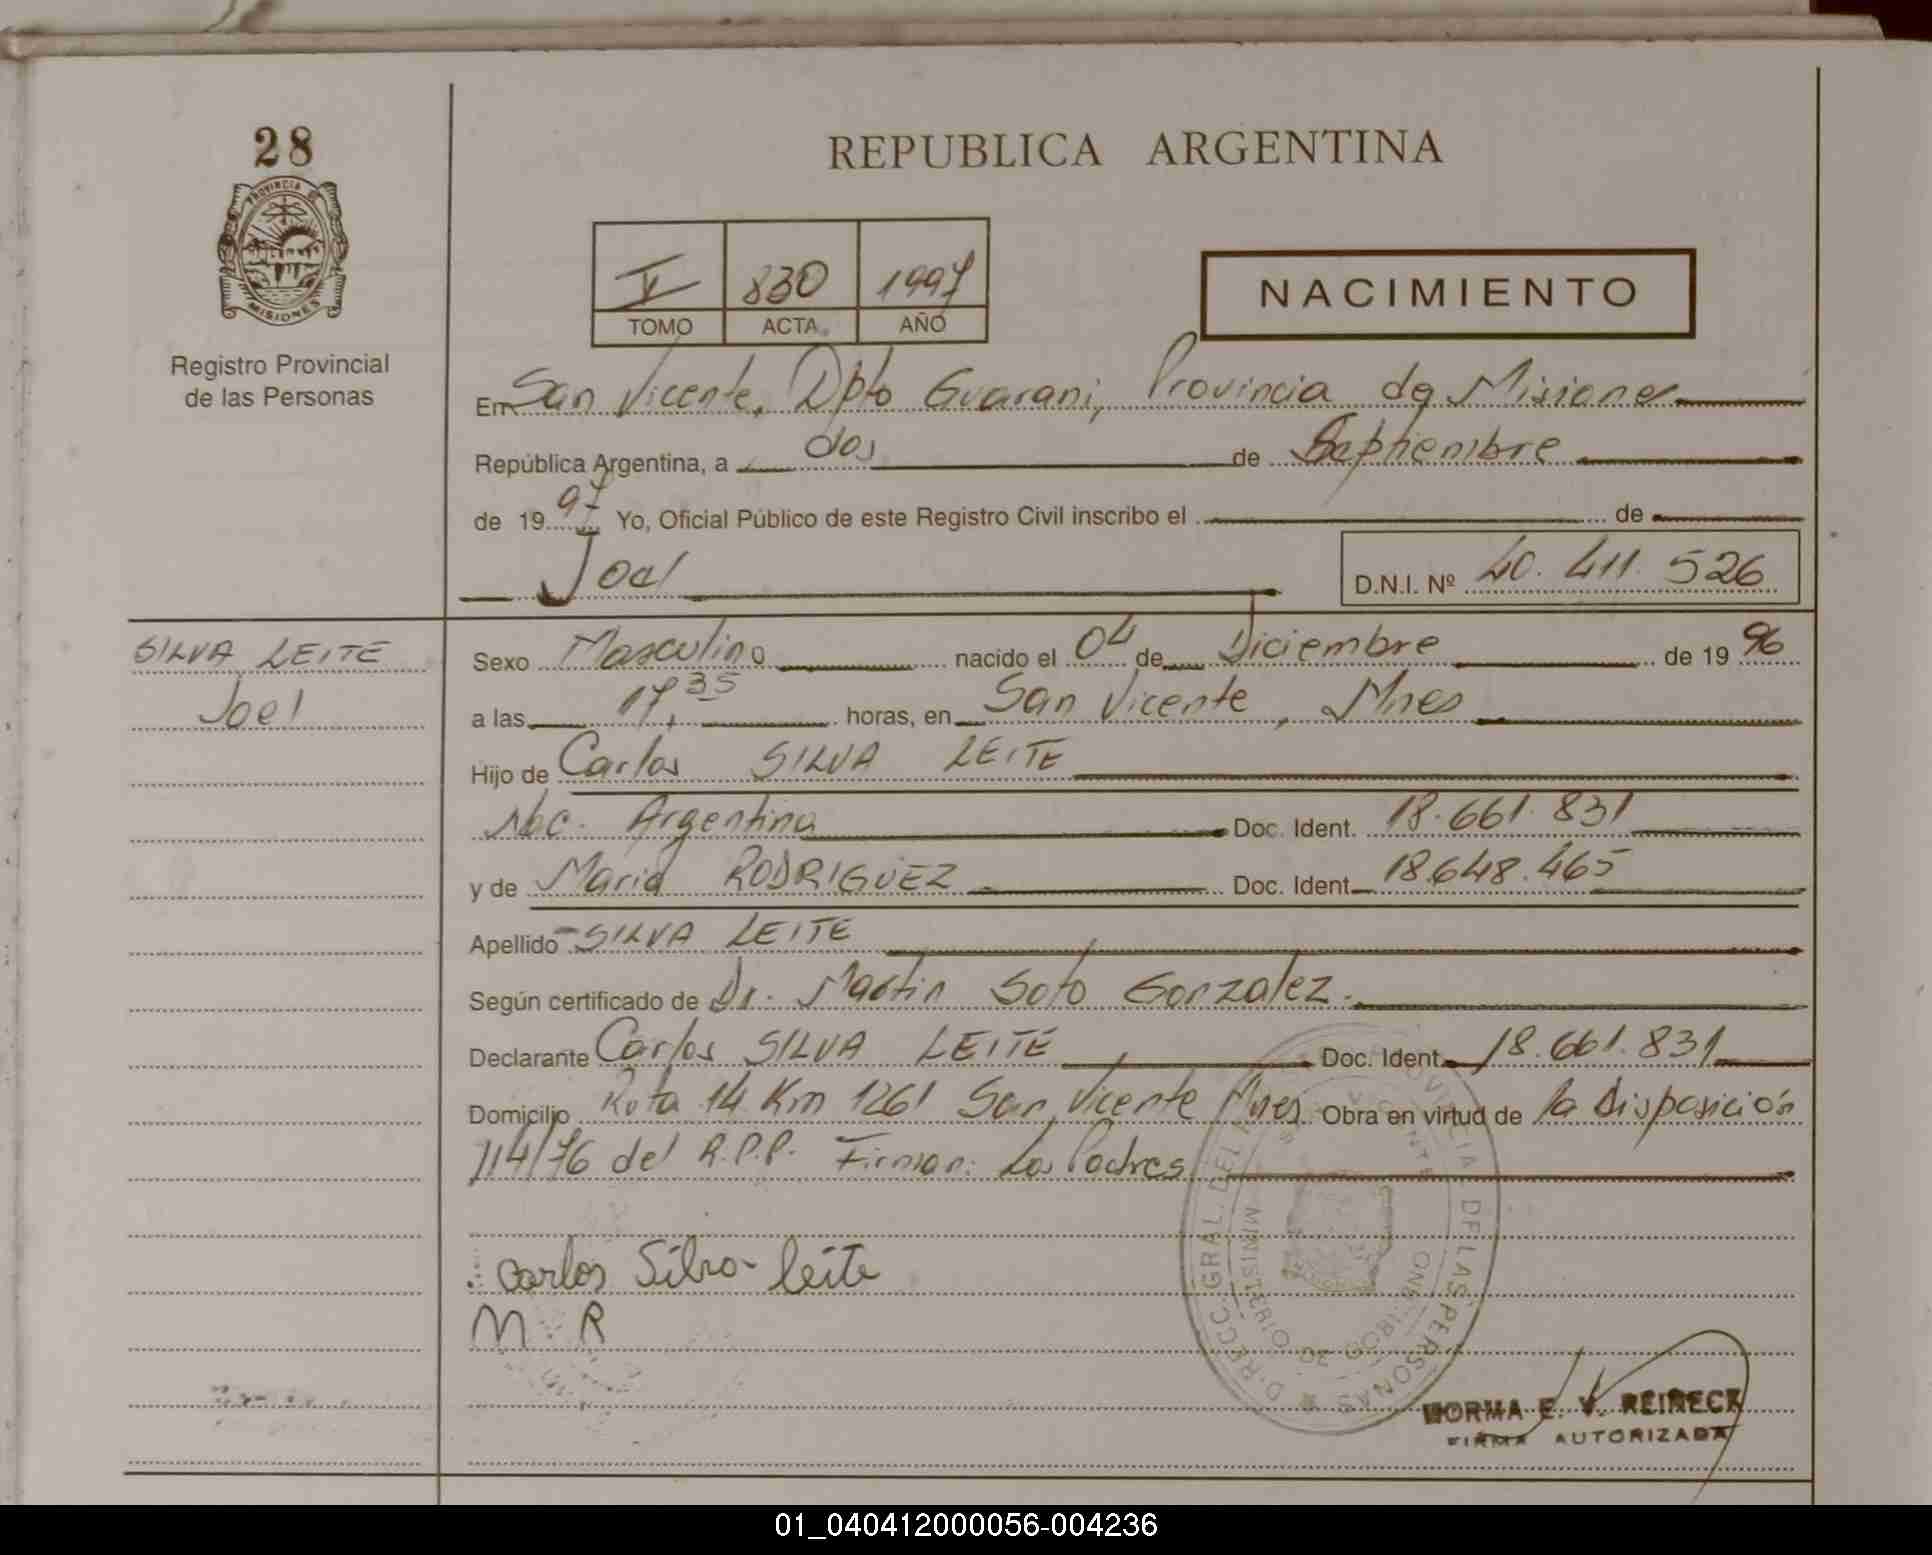 28
PROVINCIA DE
MISIONES
Registro Provincial
de las Personas
REPUBLICA ARGENTINA
V 830 1997
TOMO ACTA AÑO
NACIMIENTO
En San Vicente, Dpto Guarani, Provincia de Misiones
República Argentina, a dos de Septiembre
de 1997 Yo, Oficial Público de este Registro Civil inscribo el de
Joel D.N.I. Nº 40.411.526
SILVA LEITE
Joel
Sexo Masculino nacido el 04 de Diciembre de 1996
a las 17,35 horas, en San Vicente, Mnes
Hijo de Carlos SILVA LEITE
Nac. Argentina Doc. Ident. 18.661.831
y de Maria RODRIGUEZ Doc. Ident. 18.648.465
Apellido SILVA LEITE
Según certificado de Dr. Martin Soto Gonzalez.
Declarante Carlos SILVA LEITE Doc. Ident. 18.661.831
Domicilio Ruta 14 Km 1261 San Vicente Mnes Obra en virtud de la disposición
114/76 del R.P.P. Firman: Los Padres
carlos Silva leite
M R
NORMA E. V. REINECK
FIRMA AUTORIZADA
01_040412000056-004236